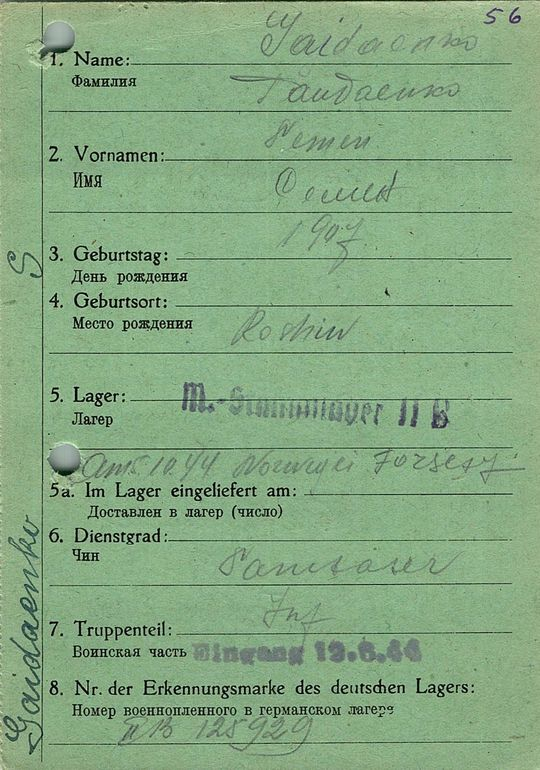 56
Gaidaenko
1. Name:
Фамилия
Гайдаенко
Semen
2. Vornamen:
Имя
Семен
1907
3. Geburtstag:
День рождения
4. Geburtsort:
Место рождения
5. Lager: M.-Stammlager II B
Лагер
Am 5.10.44
5a. Im Lager eingeliefert am:
Доставлен в лагер (число)
6. Dienstgrad:
Чин
Inf
7. Truppenteil:
Воинская часть Eingang 19.6.44
8. Nr. der Erkennungsmarke des deutschen Lagers:
Номер военнопленного в германском лагере
II B 125929
Gaidaenko S